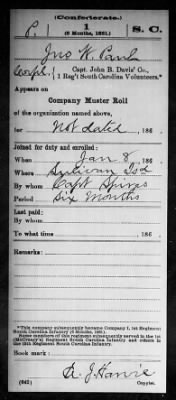 (Confederate.)
P. 1 S. C.
(6 Months, 1861.)
Jno W. Paul
Corpl., Capt. John B. Davis' Co.,
1 Reg't South Carolina Volunteers.*
Appears on
Company Muster Roll
of the organization named above,
for Not dated, 186 .
Joined for duty and enrolled:
When Jan 8, 186 .
Where Sullivan Isd
By whom Capt Spires
Period Six Months
Last paid:
By whom
To what time , 186 .
Remarks:
*This company subsequently became Company I, 1st Regiment
South Carolina Infantry (6 Months, 1861).
Some members of this regiment subsequently went to the 1st
(McCreary's) Regiment South Carolina Infantry and others to
the 15th Regiment South Carolina Infantry.
Book mark:
(642)
Copyist.